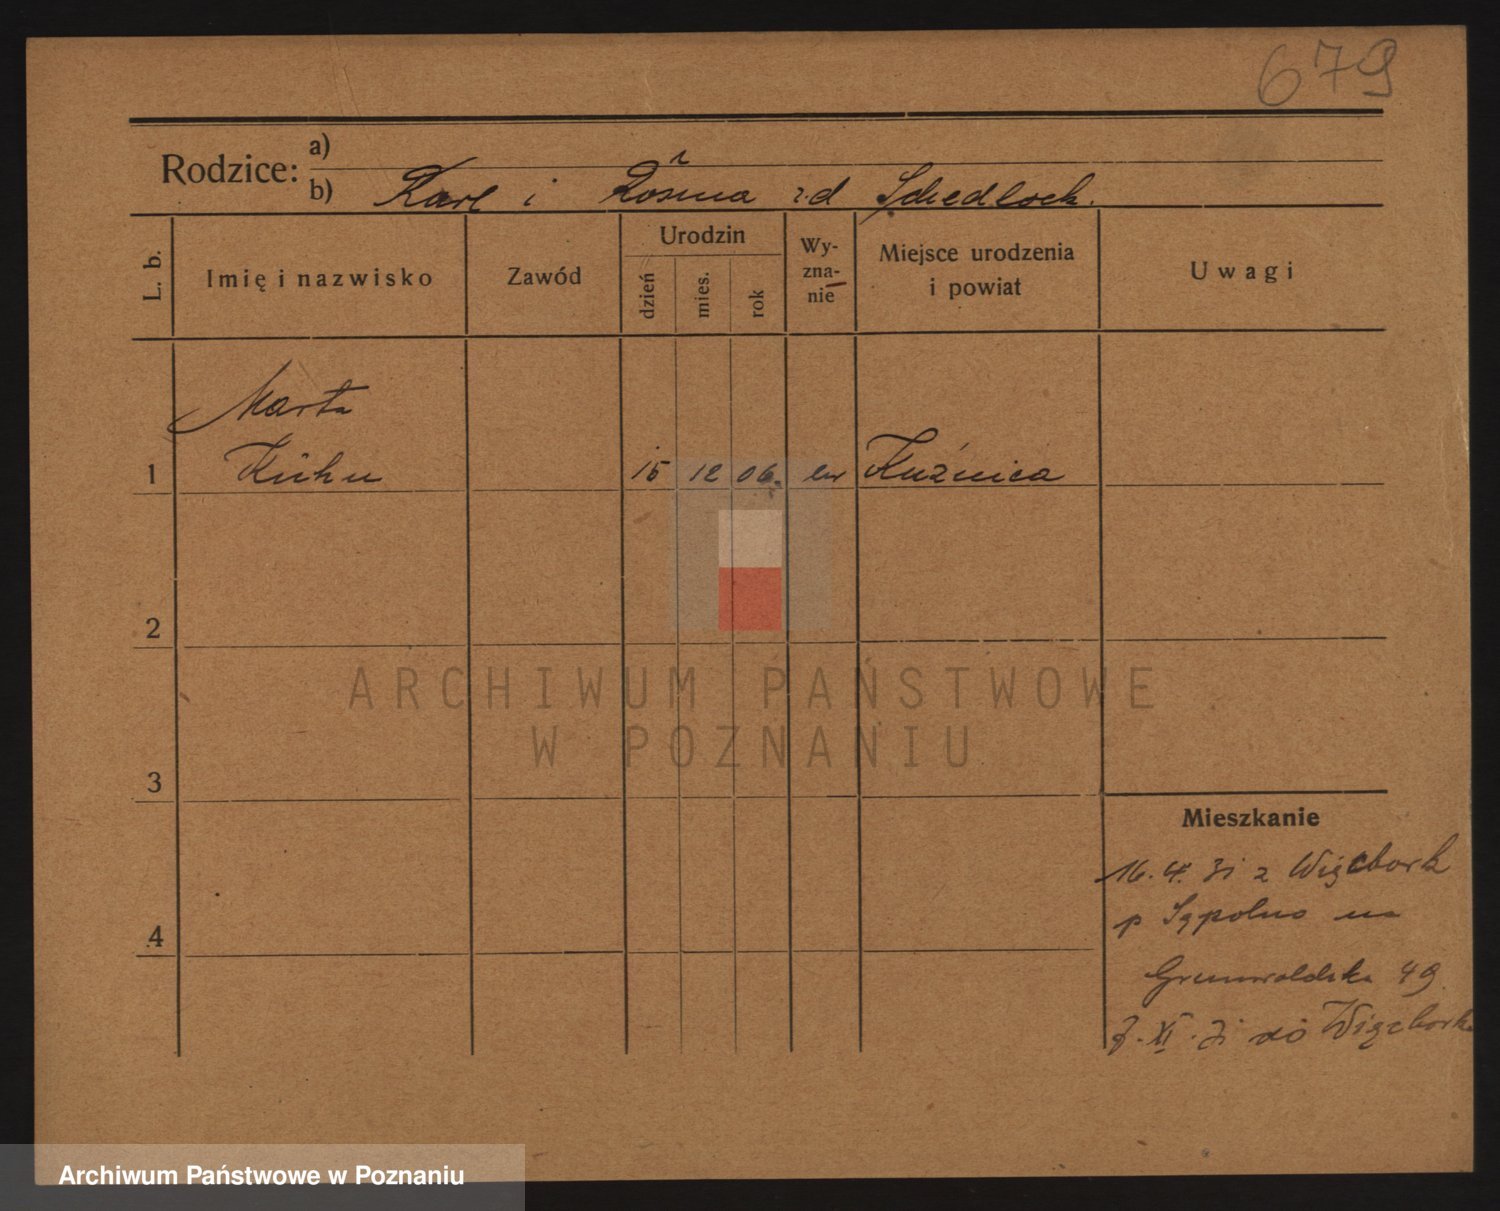 679
Rodzice:
a)
b) Karl i Rosina z.d Schedlock.
L. b.
Imię i nazwisko
Zawód
Urodzin
dzień
mies.
rok
Wy-
zna-
nie
Miejsce urodzenia
i powiat
Uwagi
Marta
1 Kühn 15 12 06. ew Kuźnica
2
ARCHIWUM PAŃSTWOWE
W POZNANIU
3
Mieszkanie
16. 4. 31 z Więcbork
p Sępolno na
4
Grunwaldzka 49.
XI. 31 do Więcborka
Archiwum Państwowe w Poznaniu